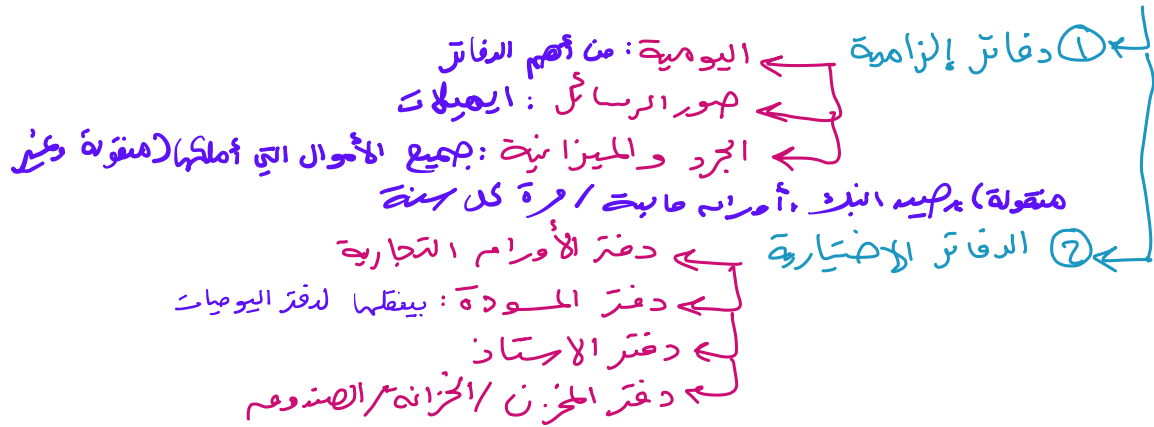 ① دفاتر إلزامية
اليومية: من أهم الدفاتر
صور الرسائل: ايميلات
الجرد والميزانية: جميع الأموال التي أملكها (منقولة وغير
منقولة)، رصيد البنك، أوراق مالية / مرة كل سنة
② الدفاتر الاختيارية
دفتر الأوراق التجارية
دفتر المسودة: بينقلها لدفتر اليوميات
دفتر الاستاذ
دفتر المخزن / الخزانة / الصندوق